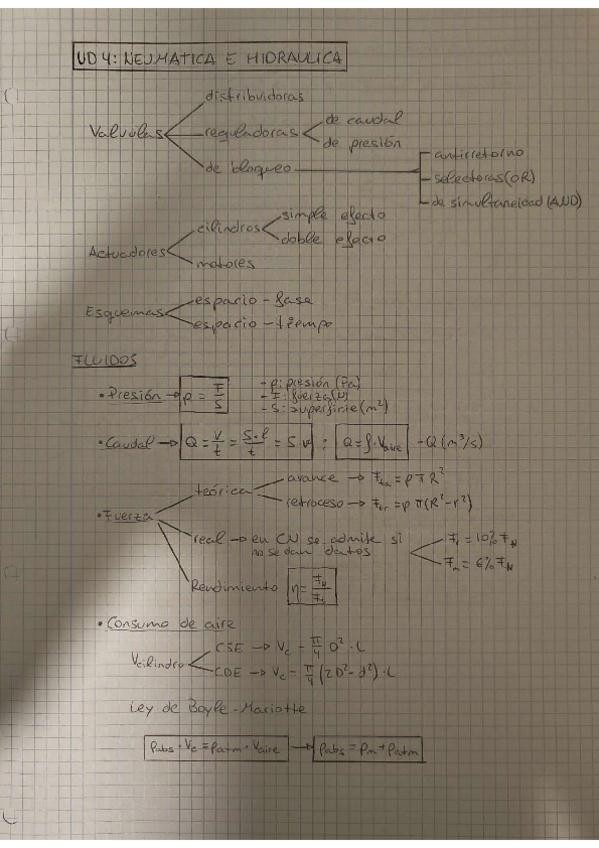 UD 4: NEUMATICA E HIDRAULICA
Valvulas
distribuidoras
reguladoras
de caudal
de presión
de bloqueo
antirretorno
selectoras (OR)
de simultaneidad (AND)
Actuadores
cilindros
simple efecto
doble efecto
motores
Esquemas
espacio - fase
espacio - tiempo
FLUIDOS
• Presión → p = F/S
- p: presión (Pa)
- F: fuerza (N)
- S: superficie (m²)
• Caudal → Q = V/t = S·l/t = S·v ; Q = f·Vaire - Q (m³/s)
• Fuerza
teórica
avance → Fta = p π R²
retroceso → Ftr = p π (R² - r²)
real → en CN se admite si
no se dan datos
Fr = 10% FN
Fm = 6% FN
Rendimiento η =
• Consumo de aire
Vcilindro
CSE → Vc = π/4 D² · L
CDE → Vc = π/4 (2D² - d²) · L
Ley de Boyle - Mariotte
Pabs · Vc = Patm · Vaire → Pabs = Pm + Patm